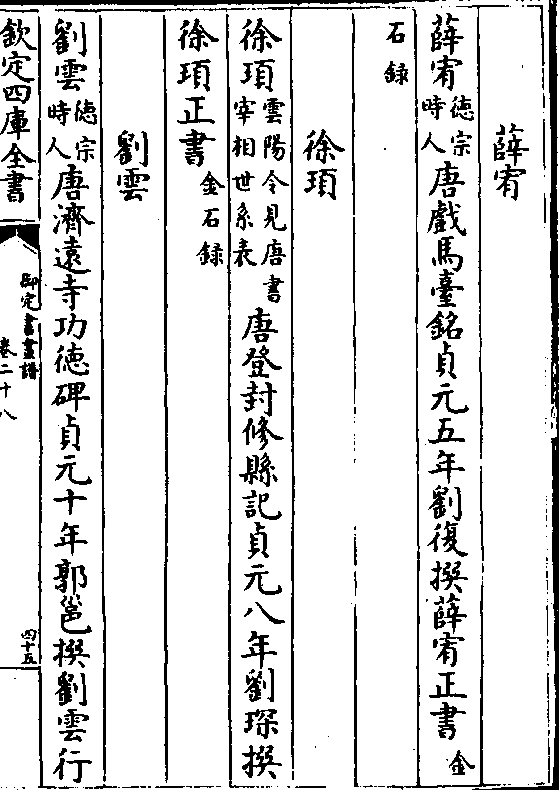 薛宥
薛宥德宗時人唐戲馬臺銘貞元五年劉復撰薛宥正書金
石録
徐頊
徐頊雲陽令見唐書宰相世系表唐登封修縣記貞元八年劉琛撰
徐頊正書金石録
劉雲
劉雲德宗時人唐濟遠寺功德碑貞元十年郭邕撰劉雲行
欽定四庫全書
御定書畫譜
卷二十八
四十五